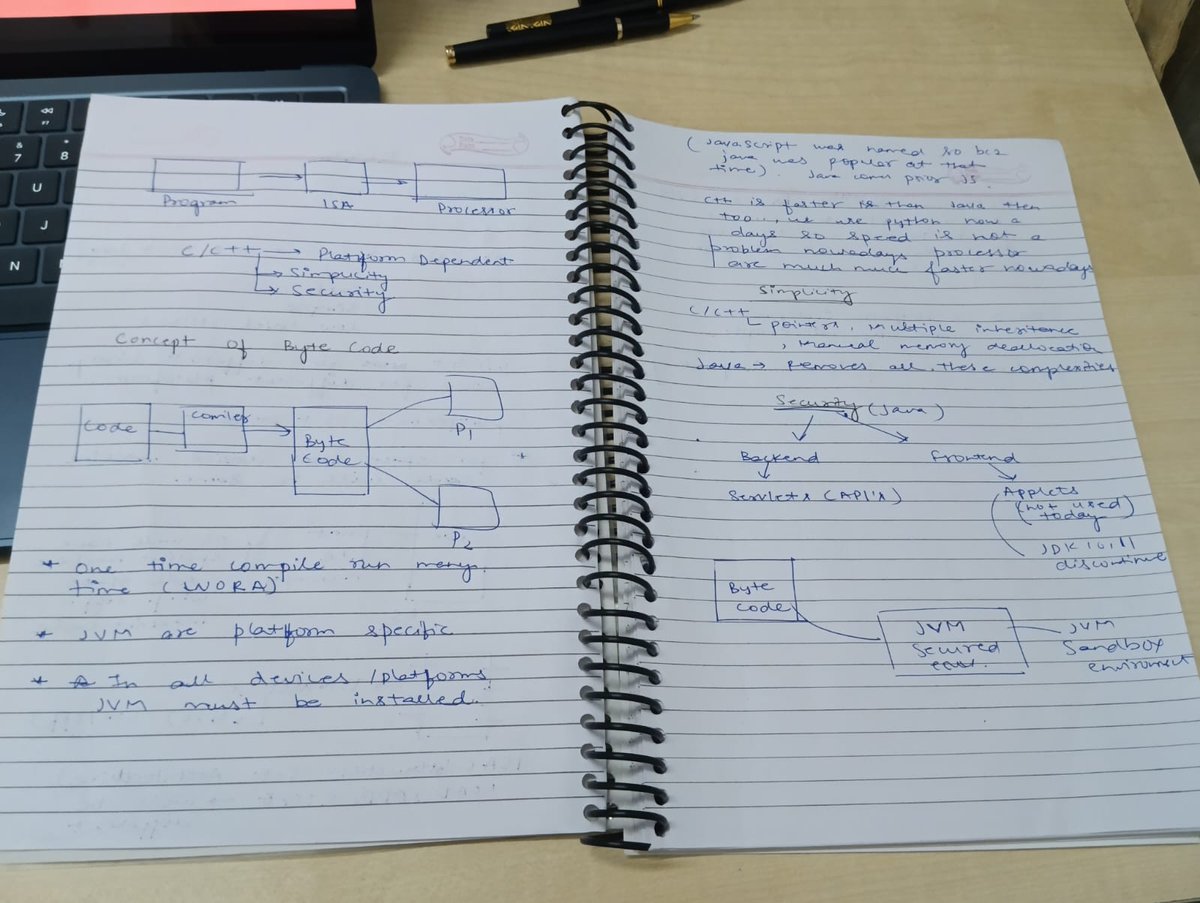 Program
ISA
Processor
C/C++ → Platform Dependent
→ Simplicity
→ Security
Concept of Byte Code
Code
Comiler
Byte
Code
P1
P2
* One time compile run meny
time (WORA)
* JVM are platform specific
* In all devices/platforms
JVM must be installed.
(JavaScript was named so bcz
java was popular at that
time). Java comes prior JS.
C++ is faster is than Java then
too.., we use python now a
days so speed is not a
problem nowadays processor
are much much faster nowadays
Simplicity
C/C++
pointers, Multiple inheritence
, Manual memory deallocation
Java → Removes all these complexities
Security (Java)
Backend
Frontend
Servlets (API's)
Applets
(not used
today)
JDK 10,11
discontinue
Byte
Code
JVM
Secured
JVM
Sandbox
7
8
U
J
N